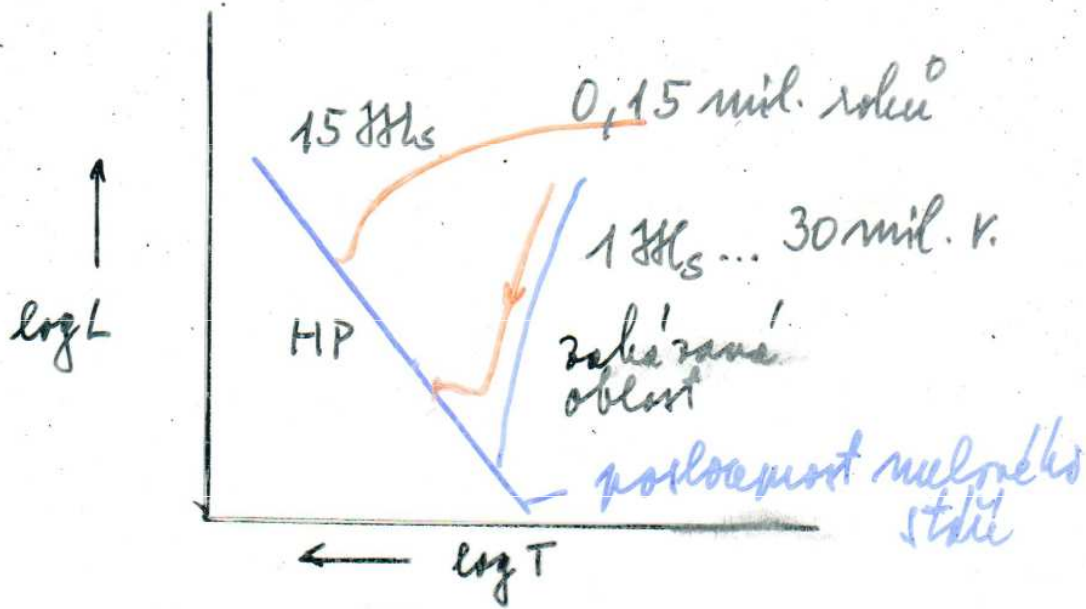 0,15 mil. roků
15 𝔐s
1 𝔐s ... 30 mil. r.
log L
HP
zakázaná
oblast
posloupnost nulového
stáří
log T